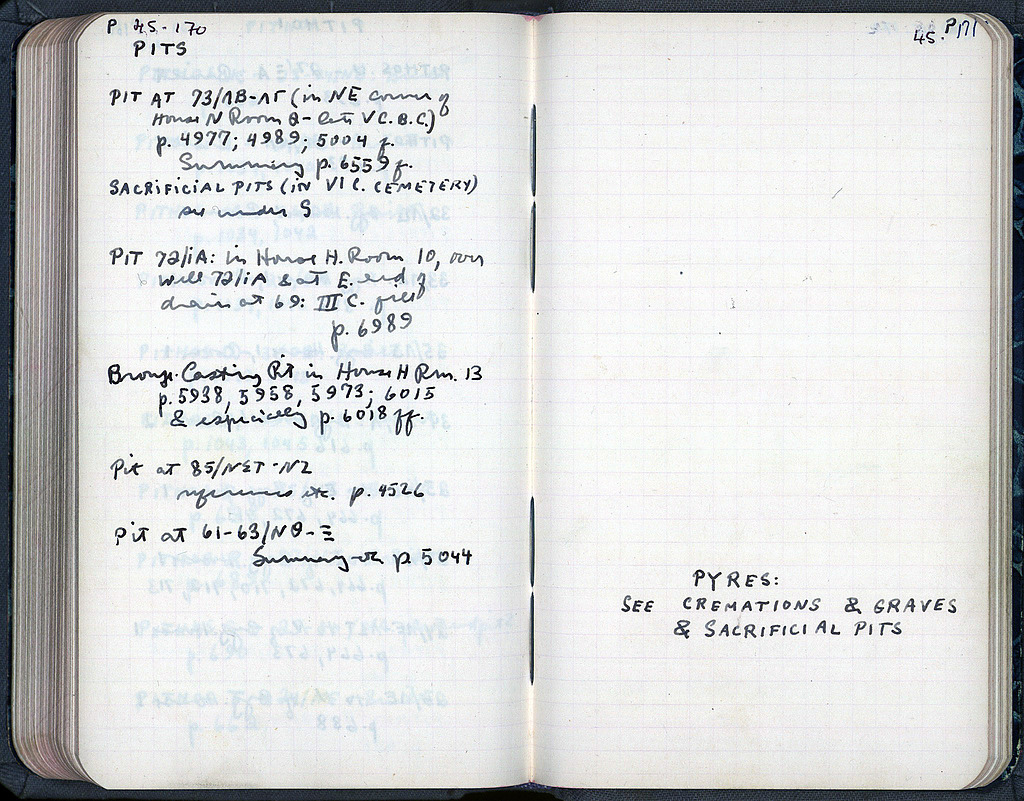 P 45-170
PITS
PIT AT 73/ΛB-ΛΓ (in NE corner of
House N Room θ - late V C. B.C.)
p. 4977; 4989; 5004 f.
Summary p. 6559 f.
SACRIFICIAL PITS (IN VI C. CEMETERY)
see under S
PIT 72/ιA: in House H. Room 10, over
well 72/ιA & at E. end of
drain at 69: III C. fill
p. 6989
Bronze-Casting Pit in House H Rm. 13
p. 5938, 5958, 5973; 6015
& especially p. 6018 ff.
Pit at 85/NΣT-NZ
references etc. p. 4526
Pit at 61-63/Nθ-Ξ
Summary p. 5044
45-P171
PYRES:
SEE CREMATIONS & GRAVES
& SACRIFICIAL PITS